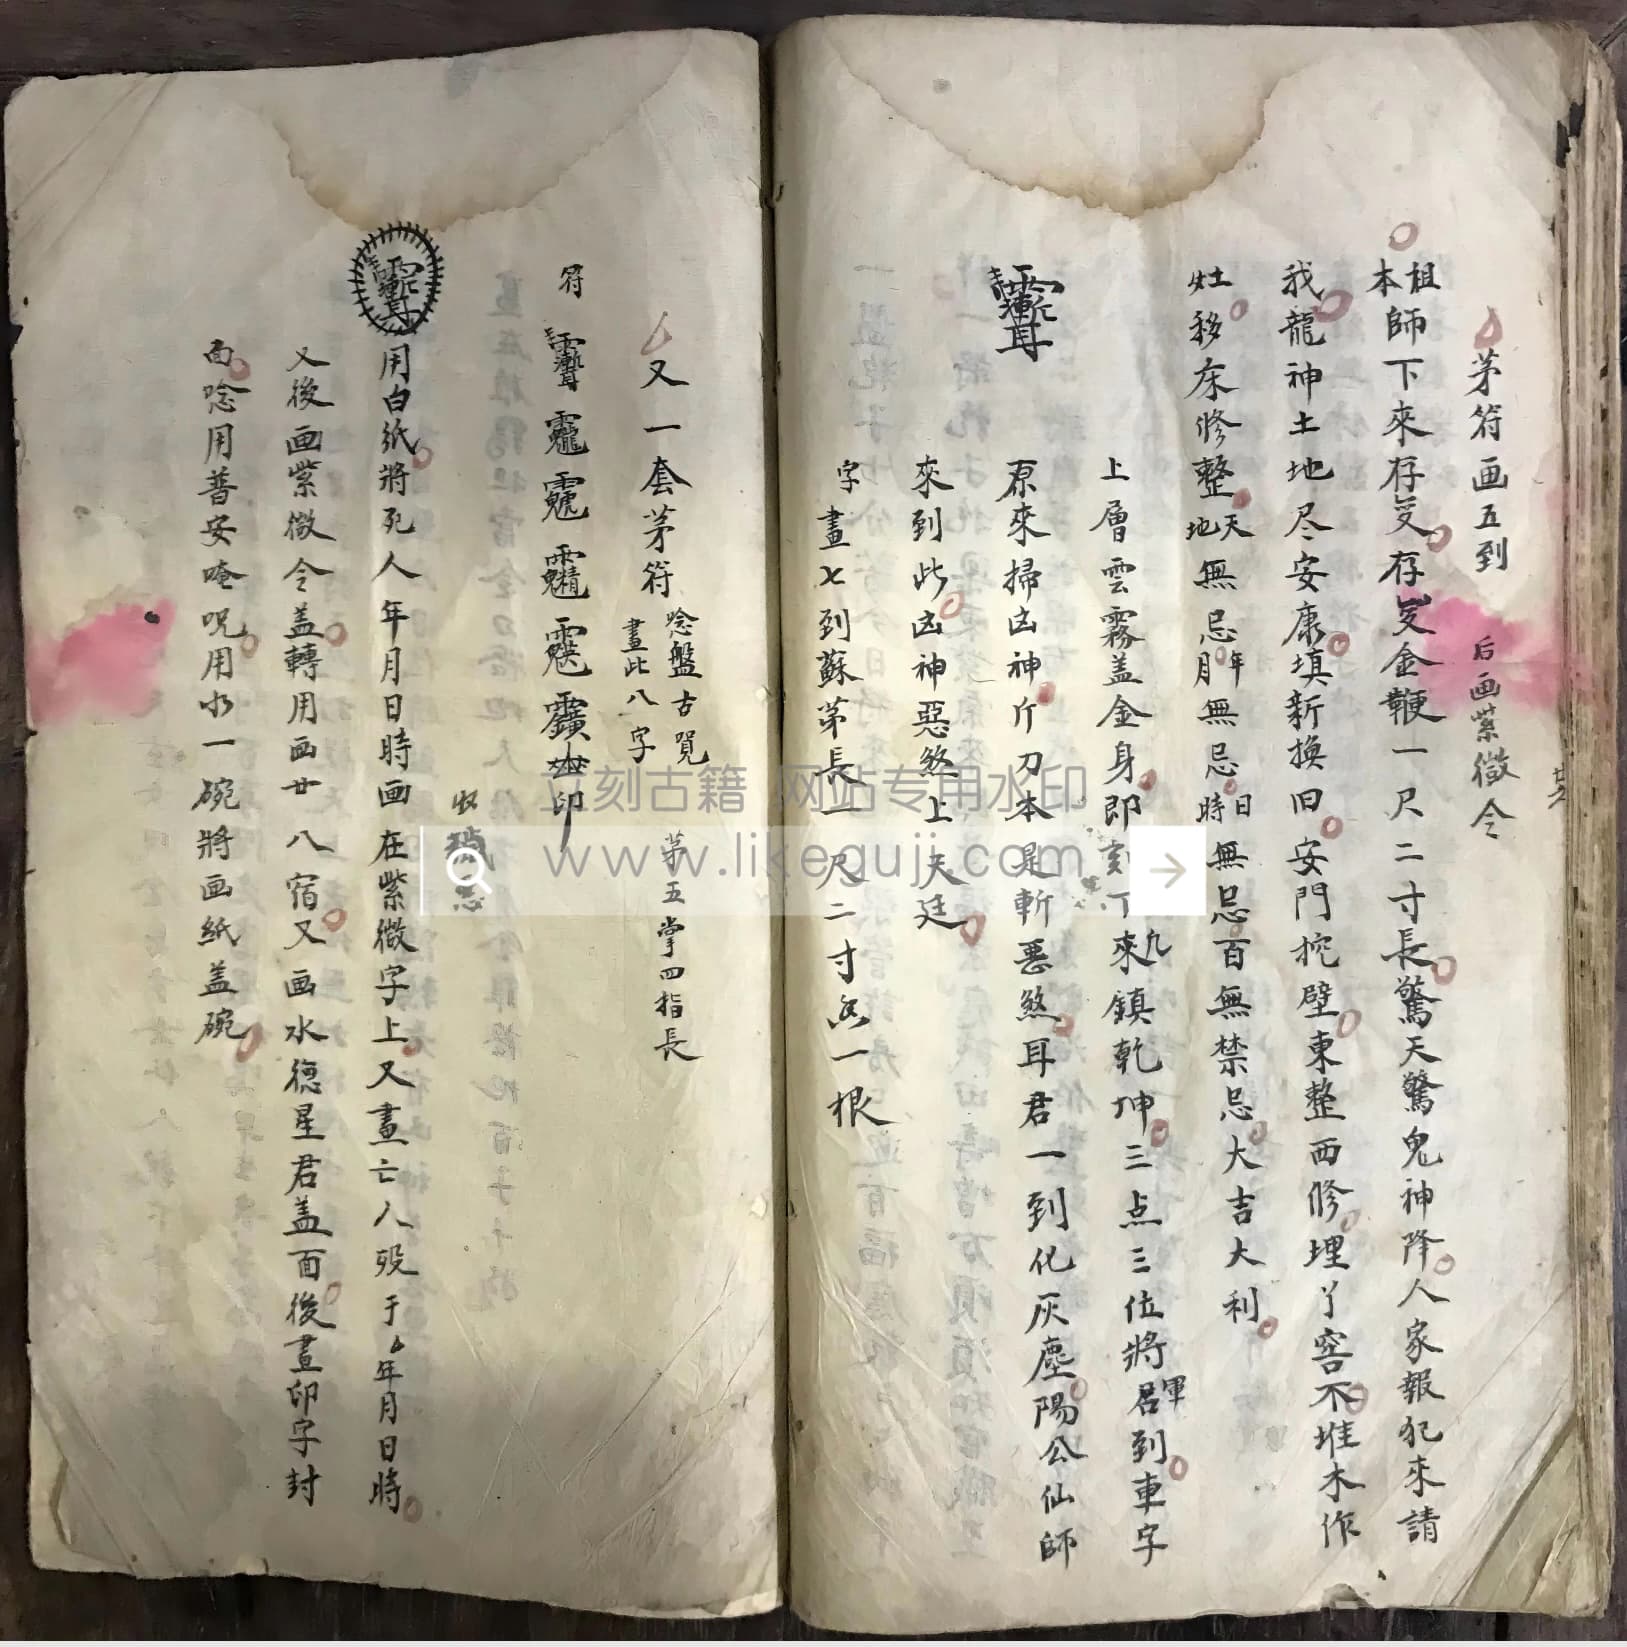 茅符画五到 后画紫微令
祖本師下來存变存变金鞭一尺二寸長驚天驚鬼神降人家報犯來請
我龍神土地尽安康填新換旧安門挖壁東整西修埋丫窖不堆木作
灶移床修整天地無忌年月無忌日時無忌百無禁忌大吉大利
上層雲霧盖金身即刻丁九來鎮乾坤三点三位將軍君到車字
原來掃凶神斤刀本是斬惡煞耳君一到化灰塵陽公仙師
來到此凶神惡煞上天廷
字畫七到蘇茅長一尺二寸 一根
又一套茅符 唸盤古咒畫此八字 茅五掌四指長
符 印
收
用白紙將死人年月日時画在紫微字上又畫亡人殁于 年月日時
又後画紫微令盖轉用画廿八宿又画水德星君盖面後畫印字封
面唸用普安唵呪用水一碗將画紙盖碗
立刻古籍 网站专用水印
www.likeguji.com